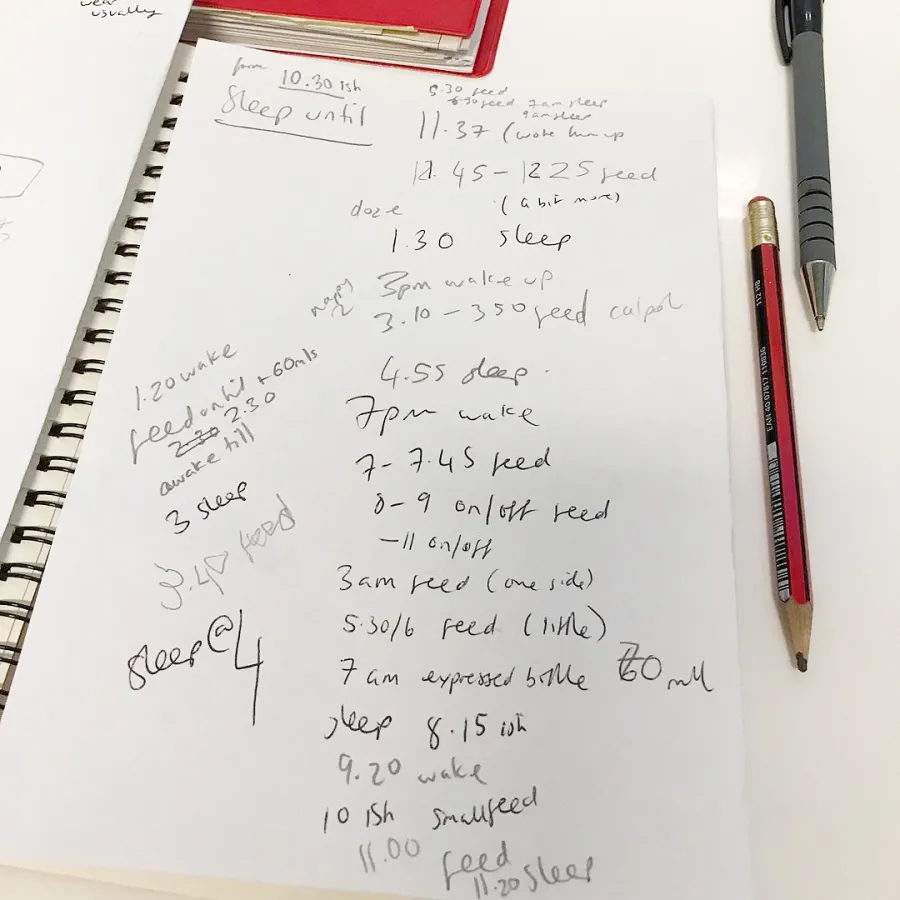 wear
usually
from 10.30 ish
Sleep until
5.30 feed
6.30 feed 7am sleep
9am sleep
11.37 (woke him up
11.45 - 12 25 feed
(a bit more)
doze
1.30 sleep
3pm wake up
nappy
2
3.10 - 350 feed calpol
4.55 sleep.
7pm wake
7 - 7.45 feed
8 - 9 on/off feed
- 11 on/off
3am feed (one side)
5.30/6 feed (little)
7am expressed bottle 60 mll
sleep 8.15 ish
9.20 wake
10 ish small feed
11.00 feed
11.20 sleep
1.20 wake
feed until + 60mls
2.30 2.30
awake till
3 sleep
3.40 feed
sleep @ 4
112 HB
EAN 40 07817 110636